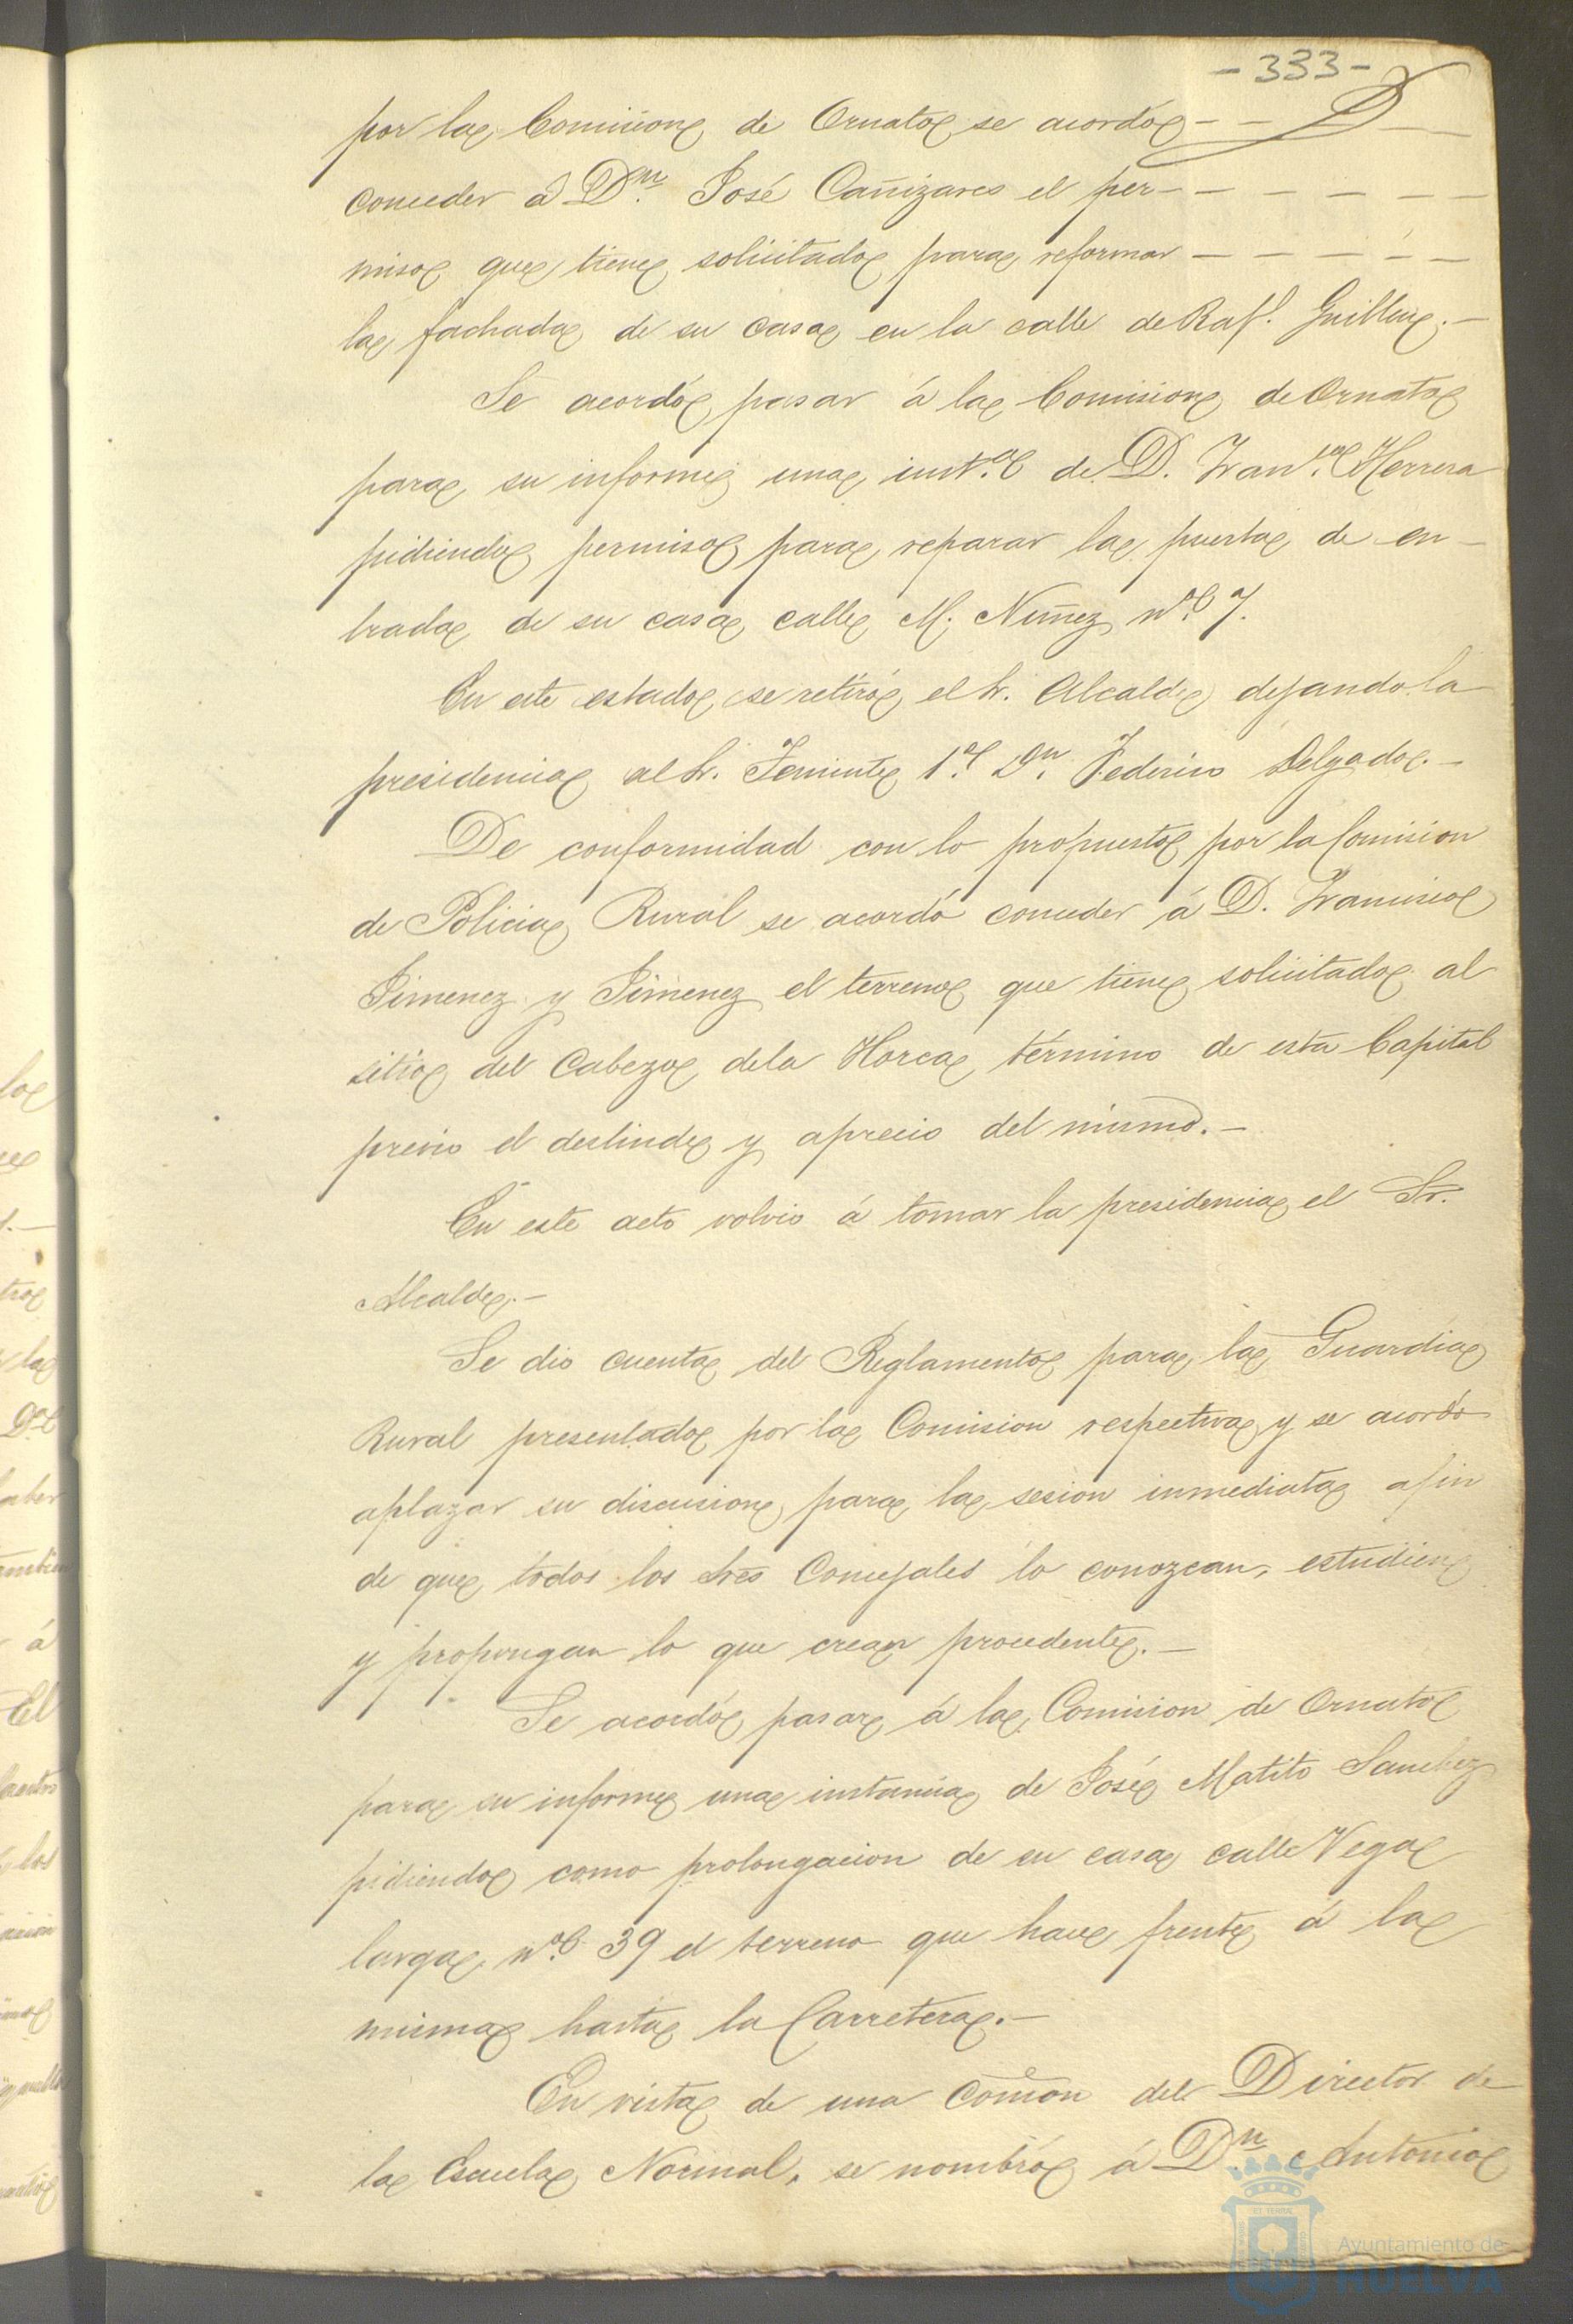 -333-
por la Comision de Ornato se acordó
conceder á Dn. José Cañizares el per-
miso que tiene solicitado para reformar
la fachada de su casa en la calle de Rafl. Guillen.-
Se acordó pasar á la Comision de Ornato
para su informe una inst.a de D. Franco. Herrera
pidiendo permiso para reparar la puerta de en-
trada de su casa calle M. Nuñez no. 7.
En este estado se retiró el Sr. Alcalde dejando la
presidencia al Sr. Teniente 1o. Dn. Federico Delgado.-
De conformidad con lo propuesto por la Comision
de Policia Rural se acordó conceder á D. Francisco
Jimenez y Jimenez el terreno que tiene solicitado al
sitio del Cabezo de la Horca, término de esta Capital
previo el deslinde y aprecio del mismo.-
En este acto volvio á tomar la presidencia el Sr.
Alcalde.-
Se dio cuenta del Reglamento para la Guardia
Rural presentado por la Comision respectiva y se acordó
aplazar su discusion para la sesion inmediata afin
de que todos los Sres Concejales lo conozcan, estudien
y propongan lo que crean procedente.-
Se acordó pasar á la Comision de Ornato
para su informe una instancia de José Matito Sanchez
pidiendo como prolongacion de su casa calle Vega
larga no. 39 el terreno que hace frente á la
misma hasta la Carretera.-
En vista de una comon del Director de
la Escuela Normal, se nombró á Dn. Antonio
Ayuntamiento de
HUELVA